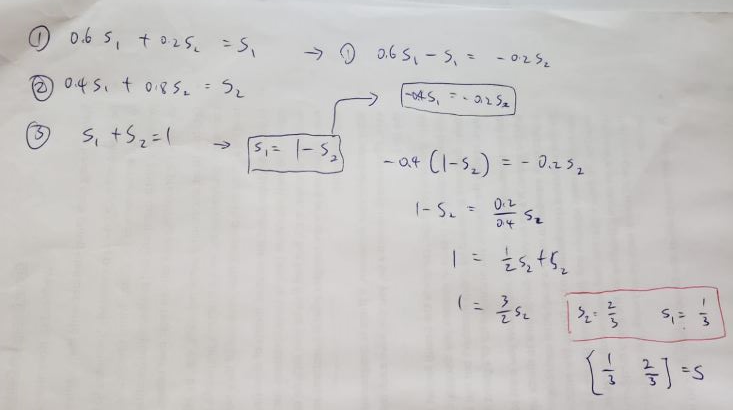 ① 0.6 S₁ + 0.2S₂ = S₁ → ① 0.6 S₁ - S₁ = -0.2S₂
② 0.4 S₁ + 0.8 S₂ = S₂
-0.4S₁ = -0.2S₂
③ S₁ + S₂ = 1 → S₁ = 1 - S₂
-0.4 (1 - S₂) = -0.2 S₂
1 - S₂ = 0.2/0.4 S₂
1 = 1/2 S₂ + S₂
1 = 3/2 S₂
S₂ = 2/3 S₁ = 1/3
[1/3 2/3] = S